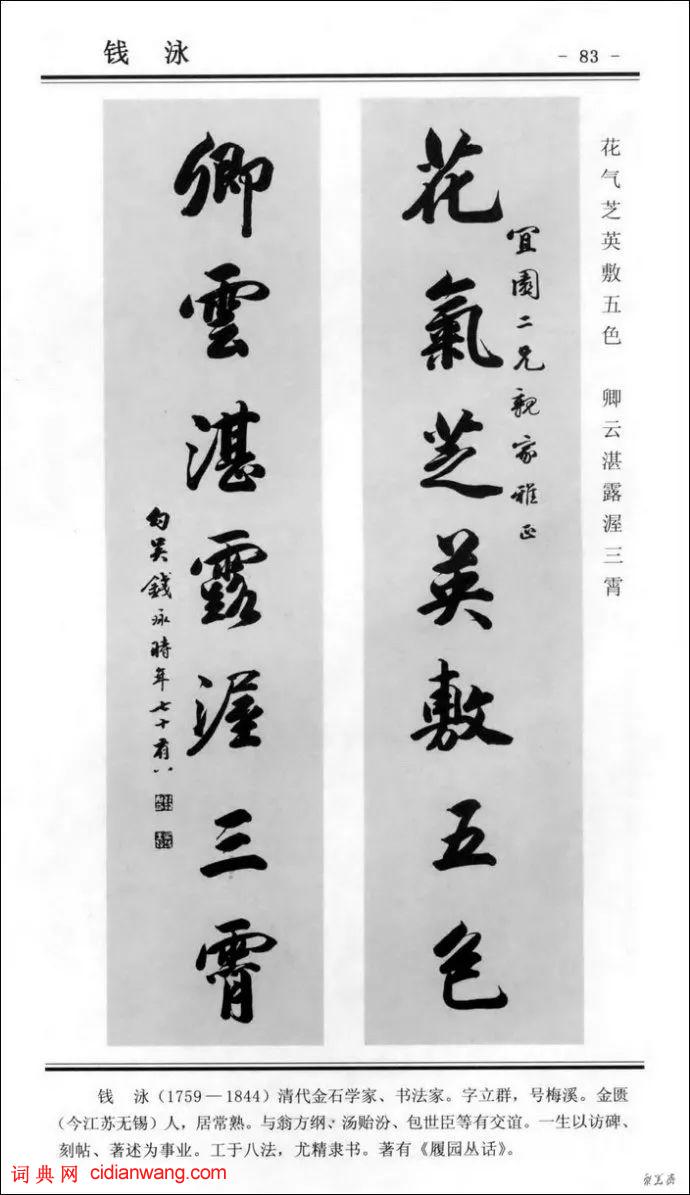 钱 泳
- 83 -
花气芝英敷五色 卿云湛露渥三霄
花氣芝英敷五色
宜園二兄親家雅正
卿雲湛露渥三霄
勾吴錢泳時年七十有八
钱 泳（1759—1844）清代金石学家、书法家。字立群，号梅溪。金匮
（今江苏无锡）人，居常熟。与翁方纲、汤贻汾、包世臣等有交谊。一生以访碑、
刻帖、著述为事业。工于八法，尤精隶书。著有《履园丛话》。
词典网 cidianwang.com